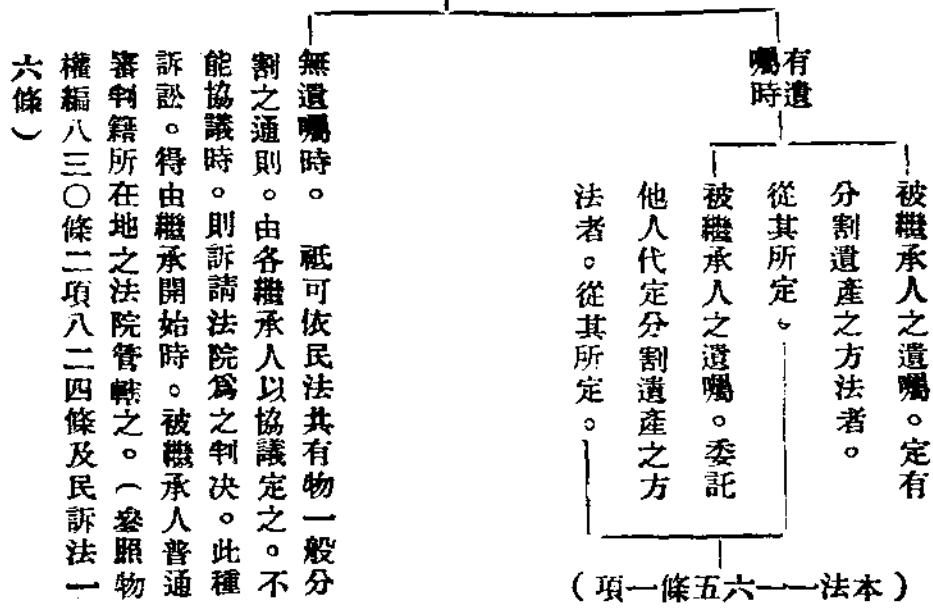 有遺
囑時
被繼承人之遺囑。定有
分割遺產之方法者。
從其所定。
被繼承人之遺囑。委託
他人代定分割遺產之方
法者。從其所定。
（本法一一六五條一項）
無遺囑時。　祗可依民法共有物一般分
割之通則。由各繼承人以協議定之。不
能協議時。則訴請法院爲之判决。此種
訴訟。得由繼承開始時。被繼承人普通
審判籍所在地之法院管轄之。（參照物
權編八三〇條二項八二四條及民訴法一
六條）